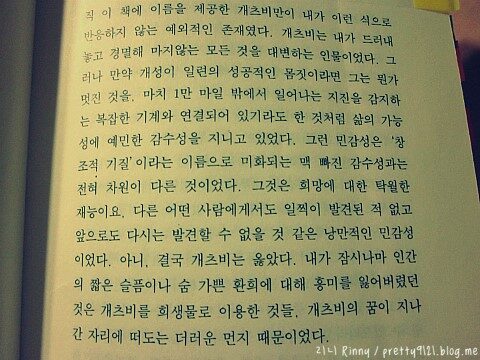 직 이 책에 이름을 제공한 개츠비만이 내가 이런 식으로
반응하지 않는 예외적인 존재였다. 개츠비는 내가 드러내
놓고 경멸해 마지않는 모든 것을 대변하는 인물이었다. 그
러나 만약 개성이 일련의 성공적인 몸짓이라면 그는 뭔가
멋진 것을, 마치 1만 마일 밖에서 일어나는 지진을 감지하
는 복잡한 기계와 연결되어 있기라도 한 것처럼 삶의 가능
성에 예민한 감수성을 지니고 있었다. 그런 민감성은 '창
조적 기질'이라는 이름으로 미화되는 맥 빠진 감수성과는
전혀 차원이 다른 것이었다. 그것은 희망에 대한 탁월한
재능이요, 다른 어떤 사람에게서도 일찍이 발견된 적 없고
앞으로도 다시는 발견할 수 없을 것 같은 낭만적인 민감성
이었다. 아니, 결국 개츠비는 옳았다. 내가 잠시나마 인간
의 짧은 슬픔이나 숨 가쁜 환희에 대해 흥미를 잃어버렸던
것은 개츠비를 희생물로 이용한 것들, 개츠비의 꿈이 지나
간 자리에 떠도는 더러운 먼지 때문이었다.
리니 Rinny / pretty9121.blog.me